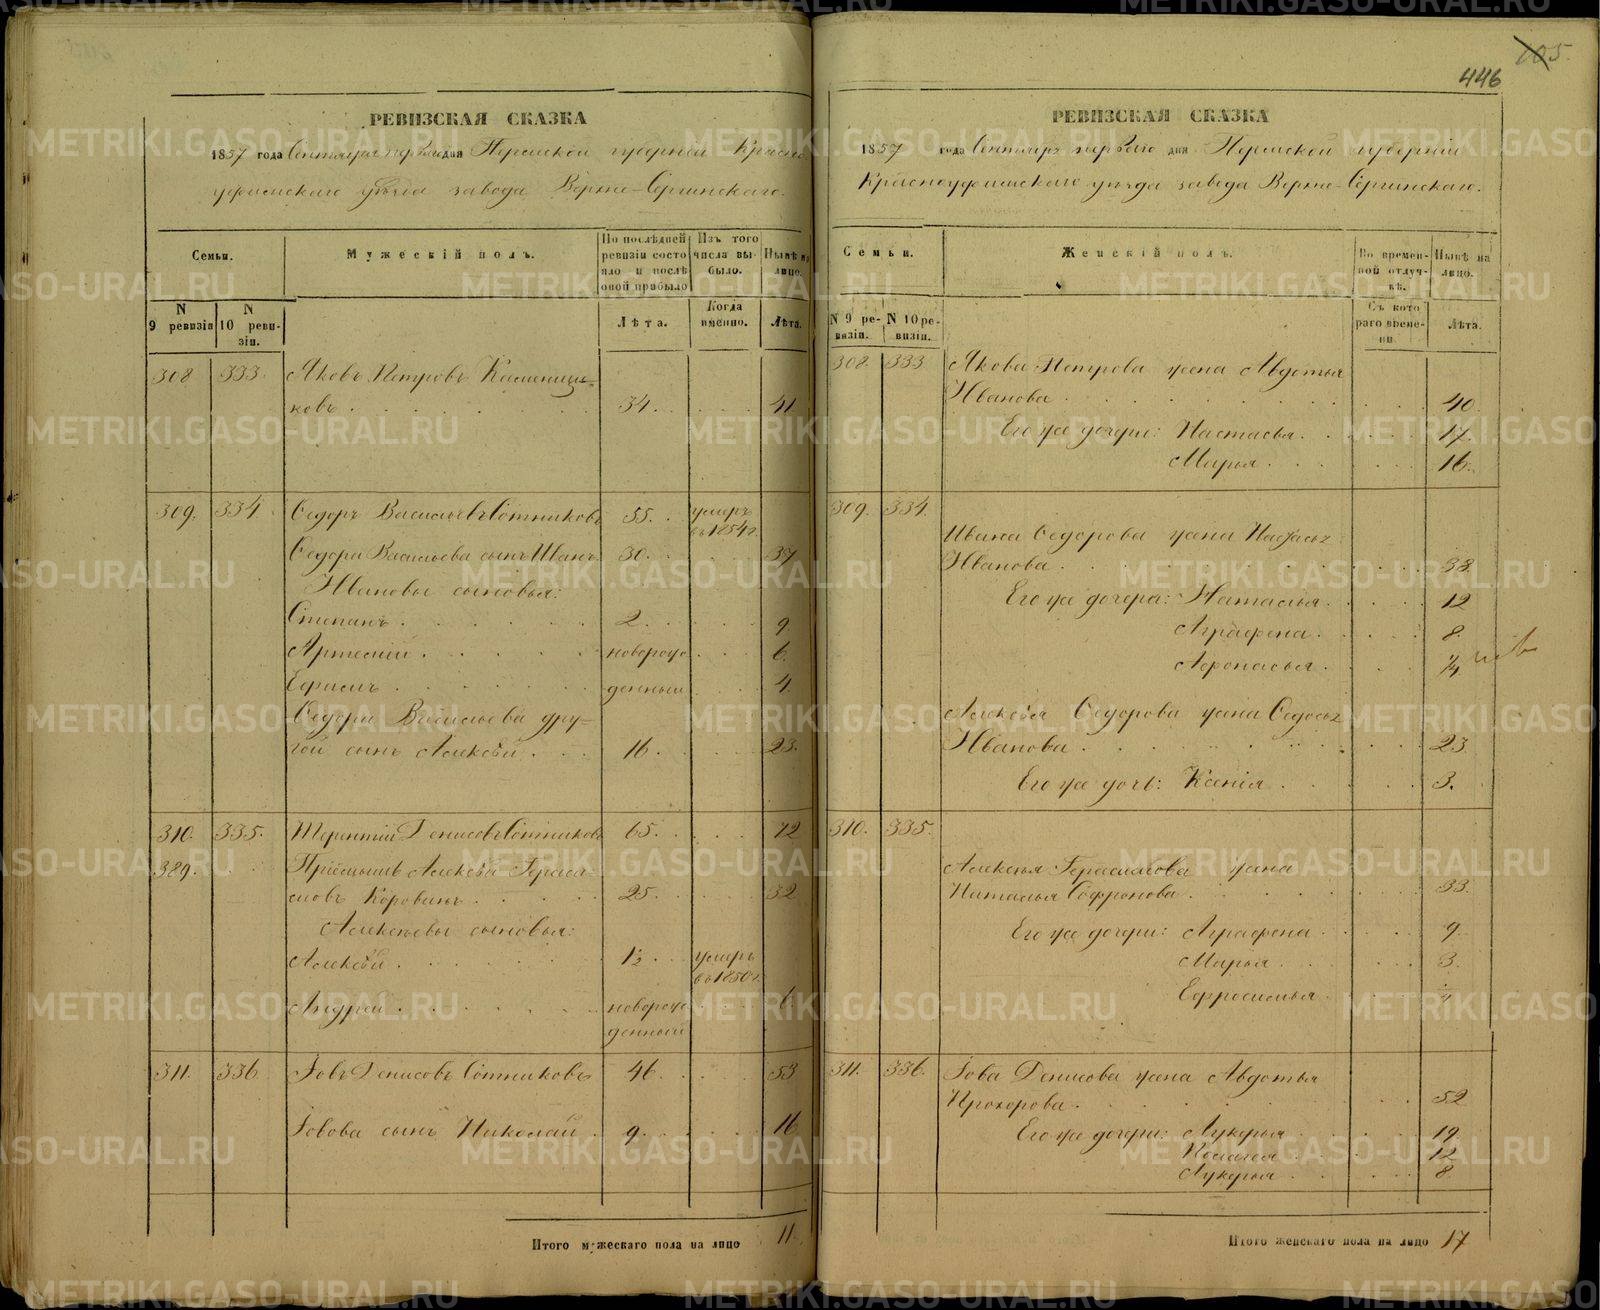 105.
446
РЕВИЗСКАЯ СКАЗКА
1857 года Сентября первого дня Пермской губерніи Красно
уфимскаго уѣзда завода Верхне-Сергинскаго.
Семьи. Мужескій полъ. По послѣдней ревизіи состояло и послѣ оной прибыло Изъ того числа выбыло. Нынѣ на лицо.
N 9 ревизіи N 10 ревизіи. Лѣта. Когда именно. Лѣта.
308 333. Яковъ Петровъ
ковъ 34. 41
309. 334 Ѳедоръ Васильевъ Сотниковъ 55. умеръ въ 1854 г.
Ѳедора Васильева сынъ Иванъ 30. 37
Ивановы сыновья:
Степанъ 2. 9
Артемій новорож 6.
Герасимъ денныи 4.
Ѳедора Васильева дру=
гой сынъ Алексѣй 16. 23.
310. 335. Терентій Денисовъ Сотниковъ 65. 72
389. Пріемышъ Алексѣй Гераси
мовъ Коровинъ 25. 32
Алексѣевы сыновья:
Алексѣй 1½ умеръ въ 1850 г.
Андрей новорож 6
денный
311. 336 Іовъ Денисовъ Сотниковъ 46. 53
Іовова сынъ Николай 9. 16
Итого мужескаго пола на лицо 11.
РЕВИЗСКАЯ СКАЗКА
1857 года Сентября первого дня Пермской губерніи
Красноуфимскаго уѣзда завода Верхне-Сергинскаго.
Семьи. Женскій полъ. Во временной отлучкѣ. Нынѣ на лицо.
N 9 ревизіи. N 10 ревизіи. Съ котораго времени. Лѣта.
308. 333 Якова Петрова жена Авдотья
Иванова 40.
Его же дочери: Настасья 17.
Марья 16.
309. 334.
Ивана Ѳедорова жена
Иванова 38
Его же дочери: Наталья 12
Аграфена 8.
Афонасья ¼
Алексѣя Ѳедорова жена Ѳедосья
Иванова 23
Его же дочь: Ксенія 3.
310. 335.
Алексѣя Герасимова жена
Наталья Софронова 33.
Его же дочери: Аграфена 9.
Марья 3.
Ефросинья
311. 336. Іова Денисова жена Авдотья
Прохорова 52
Его же дочери: Лукерья 19.
12
Лукерья 8.
Итого женскаго пола на лицо 17
METRIKI.GASO-URAL.RU